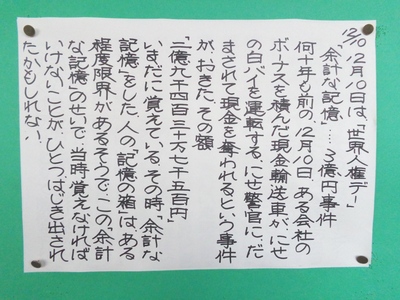 12/10
12月10日は、「世界人権デー」
「余計な記憶」‥‥3億円事件
何十年も前の、12月10日、ある会社の
ボーナスを積んだ現金輸送車が、にせ
の白バイを運転する、にせ警官に、だ
まされて現金を奪われるという事件
が、おきた。その額
「二億九千四百三十万七千五百円」
いまだに覚えている。その時、「余計な
記憶」をした。人の「記憶の箱」は、ある
程度限界があるそうで、この「余計
な記憶」のせいで、当時覚えなければ
いけないことが、ひとつはじき出され
たかもしれない。